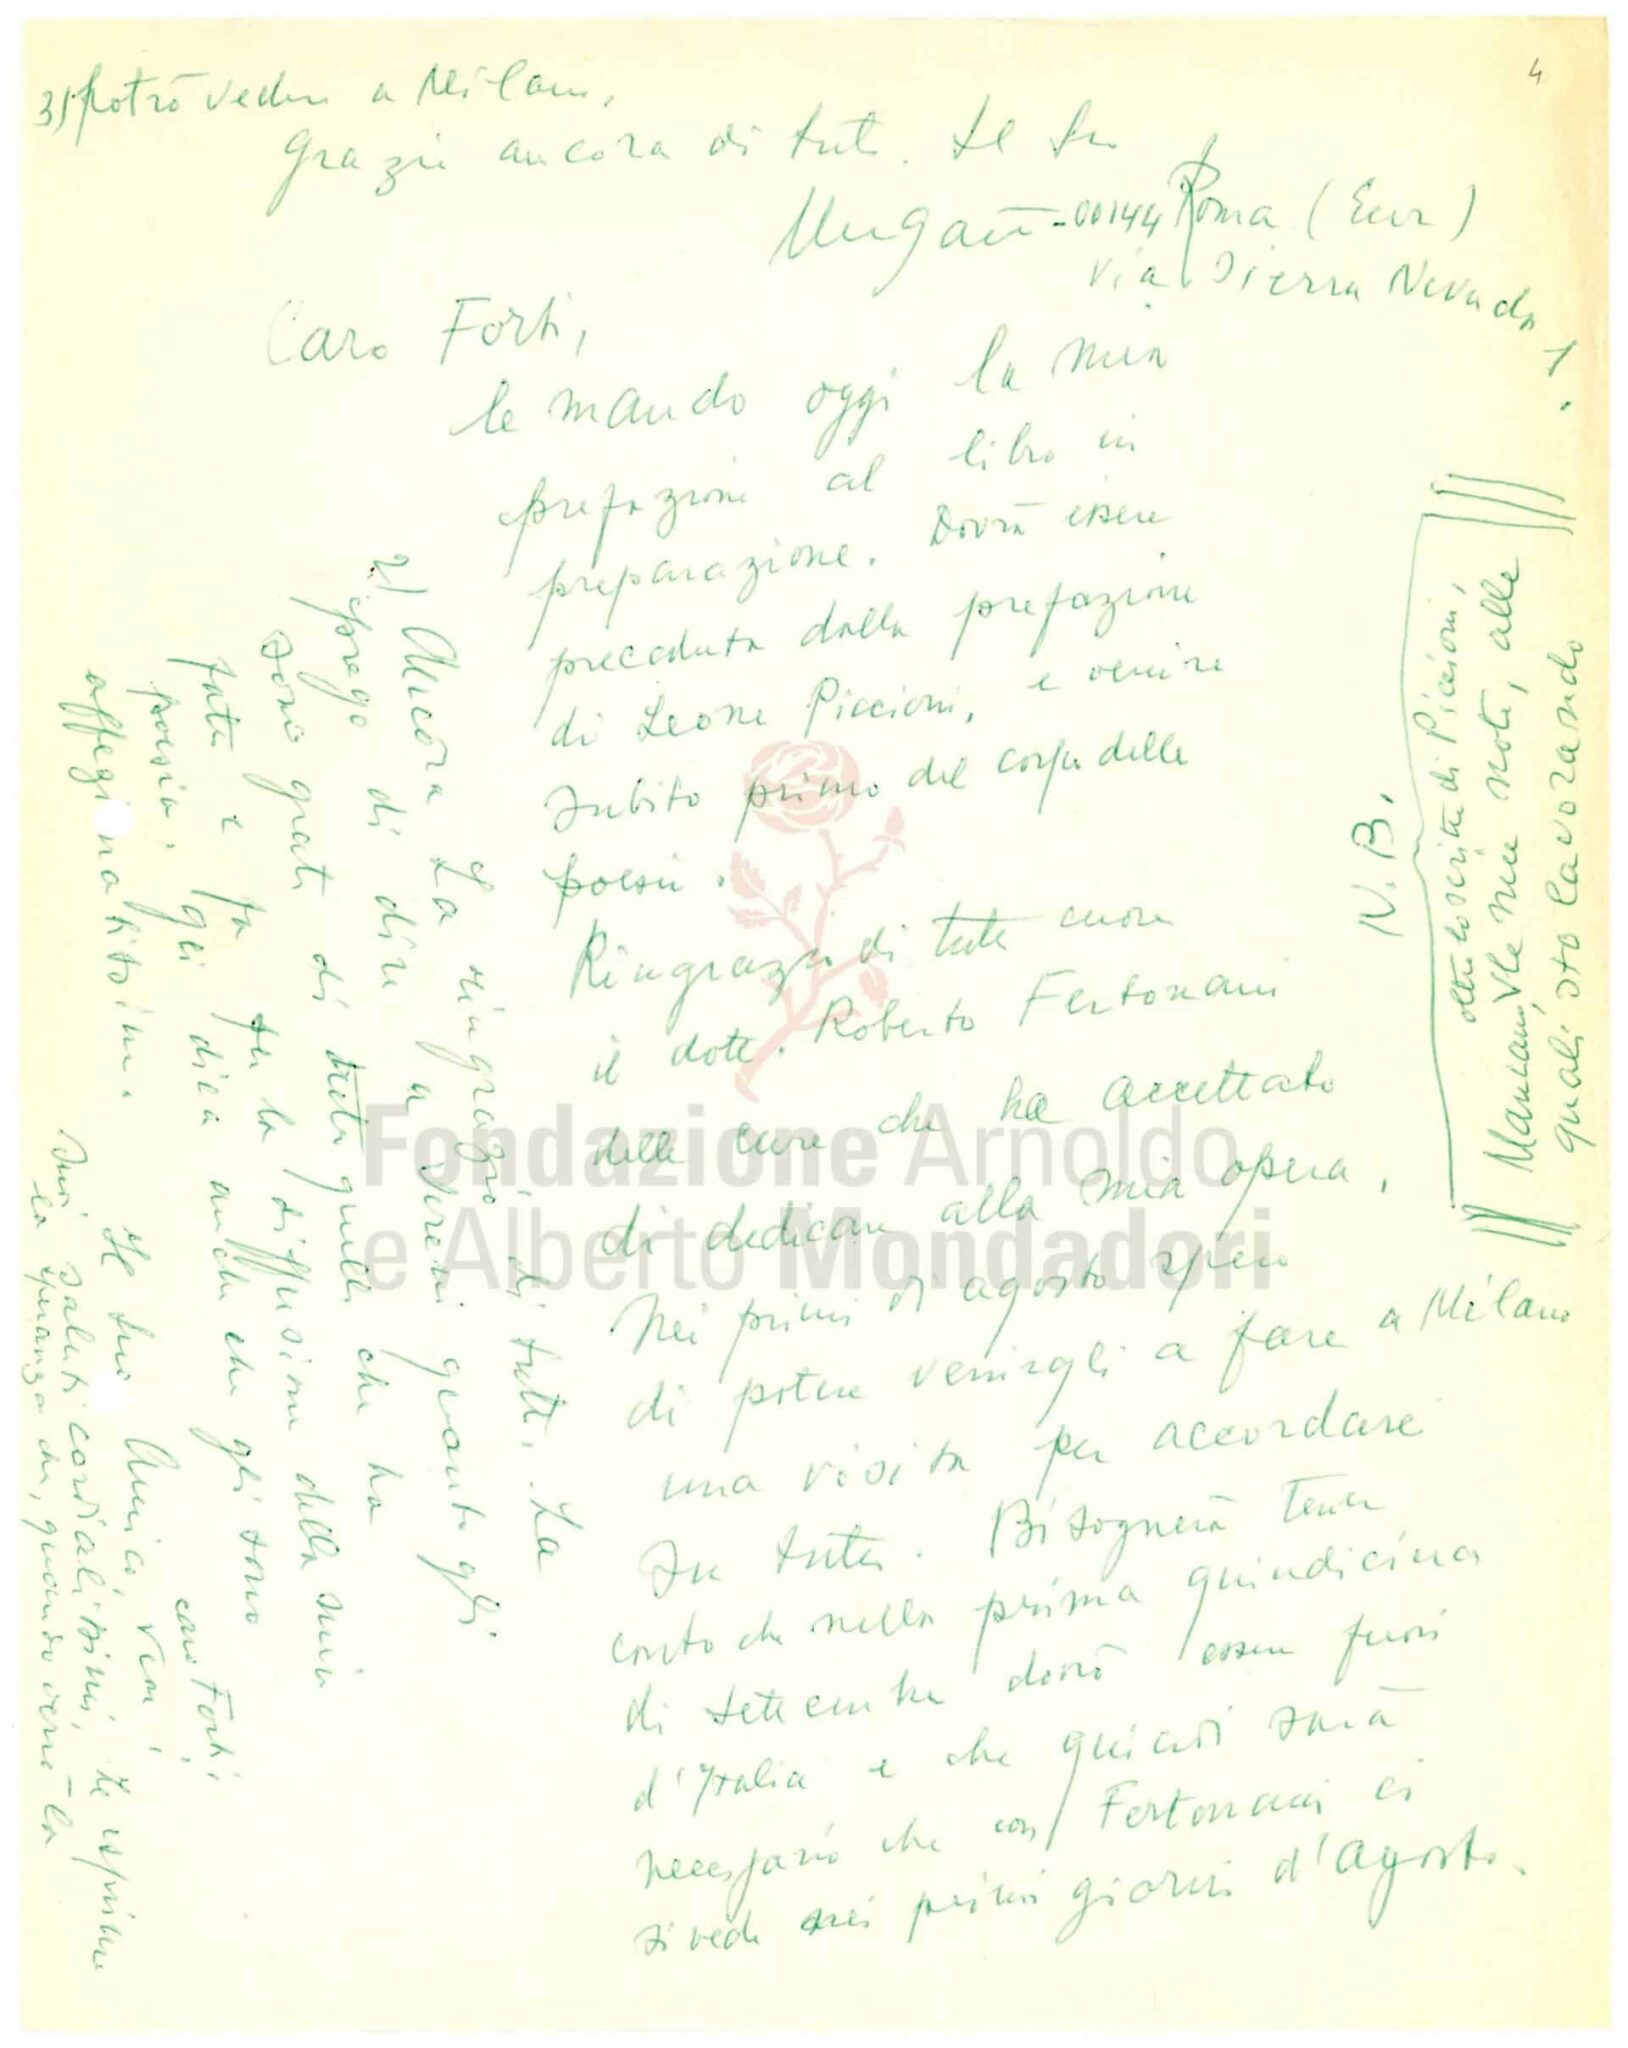 4
Caro Forti,
le mando oggi la mia
prefazione al libro in
preparazione. Dovrà essere
preceduta dalla prefazione
di Leone Piccioni, e venire
subito primo del corpo delle
poesie.
Ringrazi di tutto cuore
il dott. Roberto Fertonani
delle cure che ha accettato
di dedicare alla mia opera.
Nei primi di agosto spero
di potere venirgli a fare a Milano
una visita per accordarci
su tutto. Bisognerà tener
conto che nella prima quindicina
di settembre dovrò essere fuori
d'Italia e che quindi sarà
necessario che con Fertonani ci
si veda nei primi giorni d'agosto.
2) Ancora La ringrazio di tutto. La
prego di dire a Sereni quanto gli
sono grato di tutto quello che ha
fatto e fa per la diffusione della mia
poesia. gli dica anche che gli sono
affezionatissimo. Il suo Amico, vero,
caro Forti,
Suoi saluti cordialissimi, Le esprimo
la speranza che, quando verrò la
3) potrò vedere a Milano,
Grazie ancora di tutto. Il Suo
Ungaretti - 00144 Roma (Eur)
via Sierra Nevada
1
N.B.
oltre lo scritto di Piccioni,
Mancano le mie note, alle
quali sto lavorando
Fondazione Arnoldo
e Alberto Mondadori